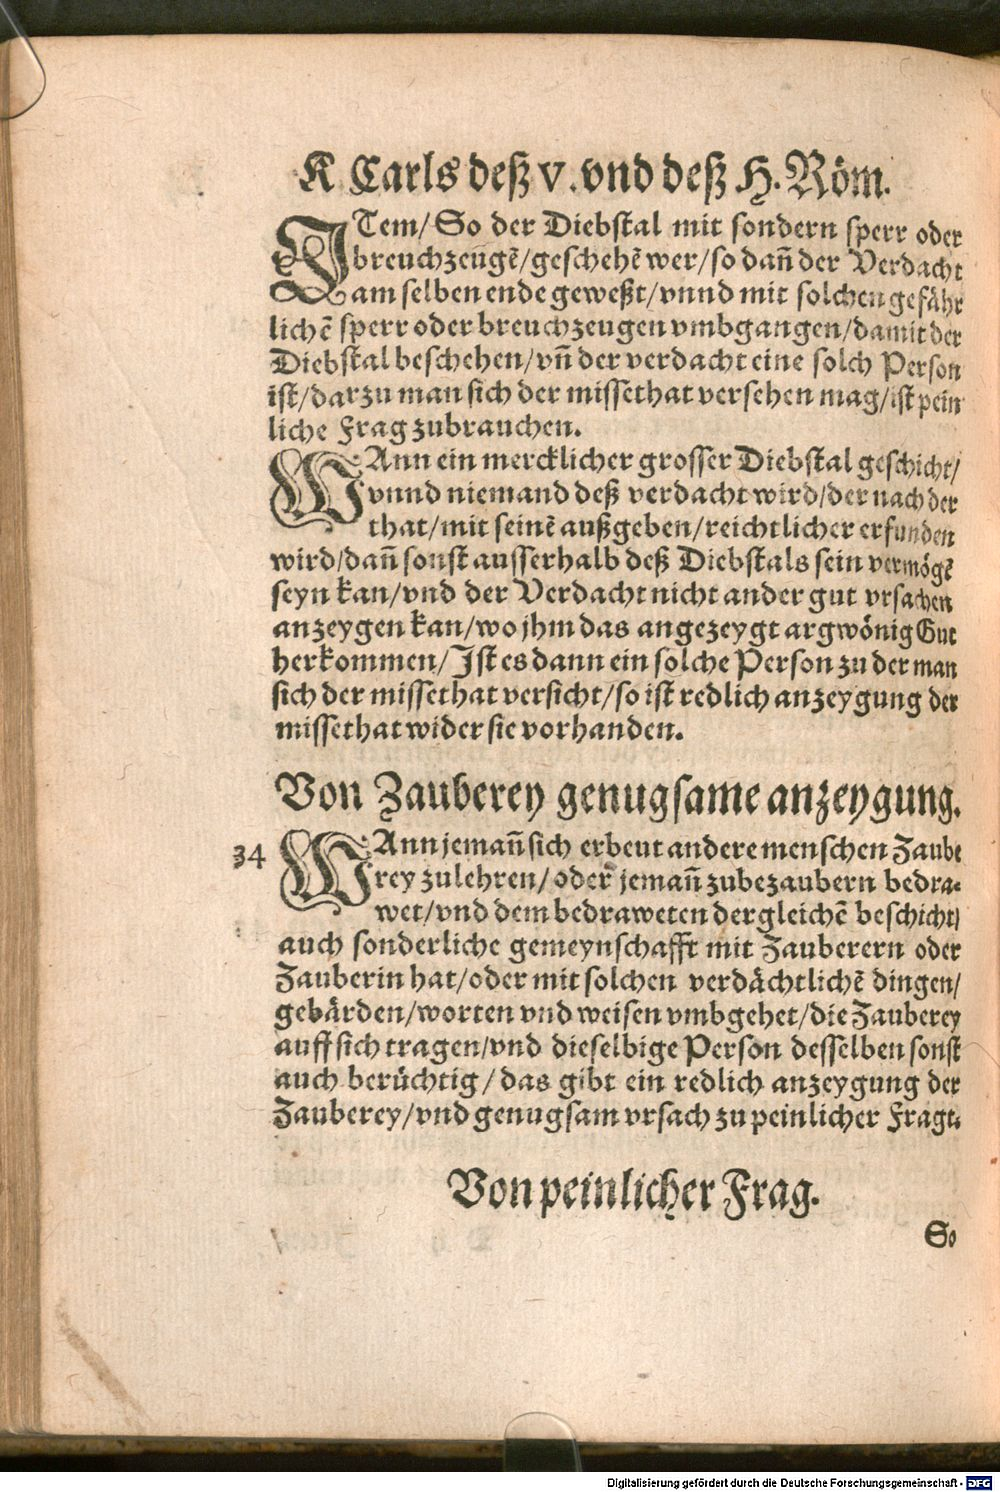 K. Carls deß v. vnd deß H. Röm.
ITem/ So der Diebstal mit sondern sperr oder
breuchzeugē/geschehē wer/so dañ der Verdacht
am selben ende geweßt/vnnd mit solchen gefähr
lichē sperr oder breuchzeugen vmbgangen/damit der
Diebstal beschehen/vñ der verdacht eine solch Person
ist/darzu man sich der missethat versehen mag/ist pein
liche Frag zubrauchen.
WAnn ein mercklicher grosser Diebstal geschicht/
vnnd niemand deß verdacht wird/der nach der
that/mit seinē außgeben/reichtlicher erfunden
wird/dañ sonst ausserhalb deß Diebstals sein vermögē
seyn kan/vnd der Verdacht nicht ander gut vrsachen
anzeygen kan/wo jhm das angezeygt argwönig Gut
herkommen/Ist es dann ein solche Person zu der man
sich der missethat versicht/so ist redlich anzeygung der
missethat wider sie vorhanden.
Von Zauberey genugsame anzeygung.
34 WAnn jemañ sich erbeut andere menschen Zaube
rey zulehren/oder jemañ zubezaubern bedra-
wet/vnd dem bedraweten dergleichē beschicht/
auch sonderliche gemeynschafft mit Zauberern oder
Zauberin hat/oder mit solchen verdächtlichē dingen/
gebärden/worten vnd weisen vmbgehet/die Zauberey
auff sich tragen/vnd dieselbige Person desselben sonst
auch berüchtig/das gibt ein redlich anzeygung der
Zauberey/vnd genugsam vrsach zu peinlicher Fragt.
Von peinlicher Frag.
So
Digitalisierung gefördert durch die Deutsche Forschungsgemeinschaft - DFG